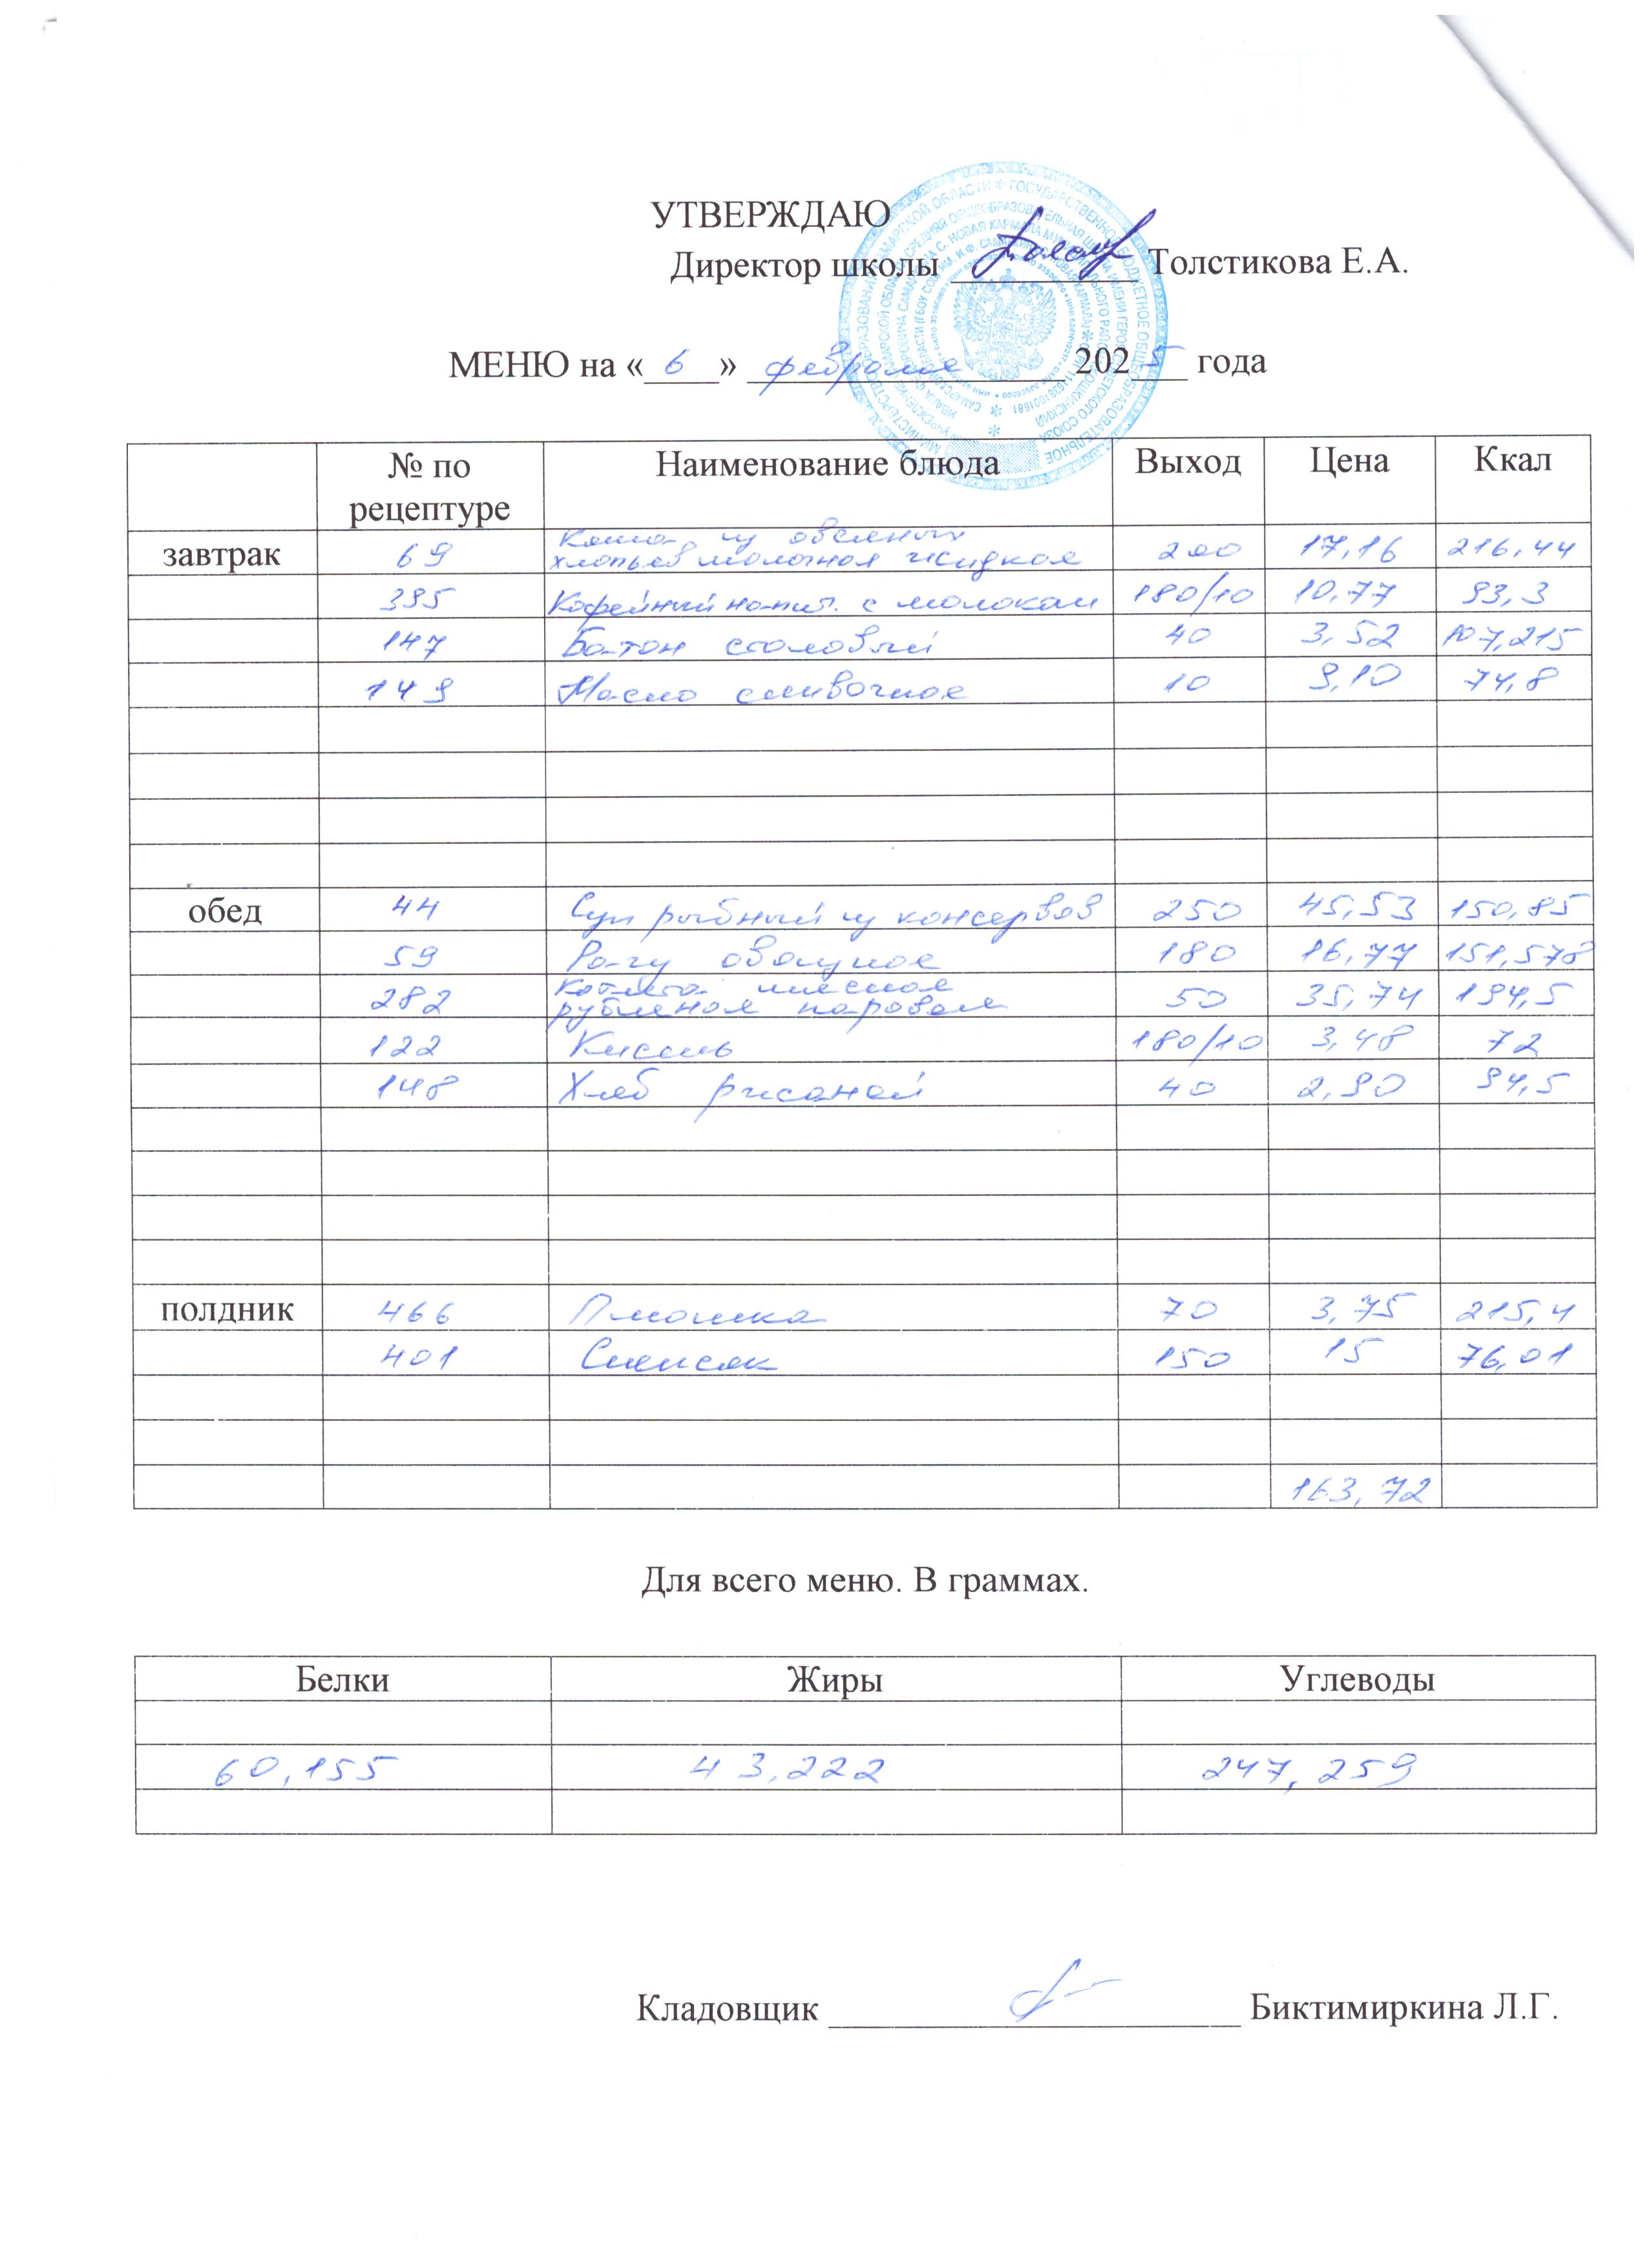 УТВЕРЖДАЮ
Директор школы Толстикова Е.А.
МЕНЮ на « 6 » февраля 2025 года
№ по рецептуре Наименование блюда Выход Цена Ккал
завтрак 69 Каша из овсяных хлопьев молочная жидкая 200 17,16 216,44
395 Кофейный напит. с молоком 180/10 10,77 93,3
147 Батон столовый 40 3,52 107,215
149 Масло сливочное 10 9,10 74,8
обед 44 Суп рыбный из консервов 250 45,53 150,85
59 Рагу овощное 180 16,77 151,578
282 Котлета мясная рубленая паровая 50 35,74 194,5
122 Кисель 180/10 3,48 72
148 Хлеб ржаной 40 2,90 94,5
полдник 466 Плюшка 70 3,75 215,4
401 Снежок 150 15 76,01
163,72
Для всего меню. В граммах.
Белки Жиры Углеводы
60,155 43,222 247,259
Кладовщик Биктимиркина Л.Г.